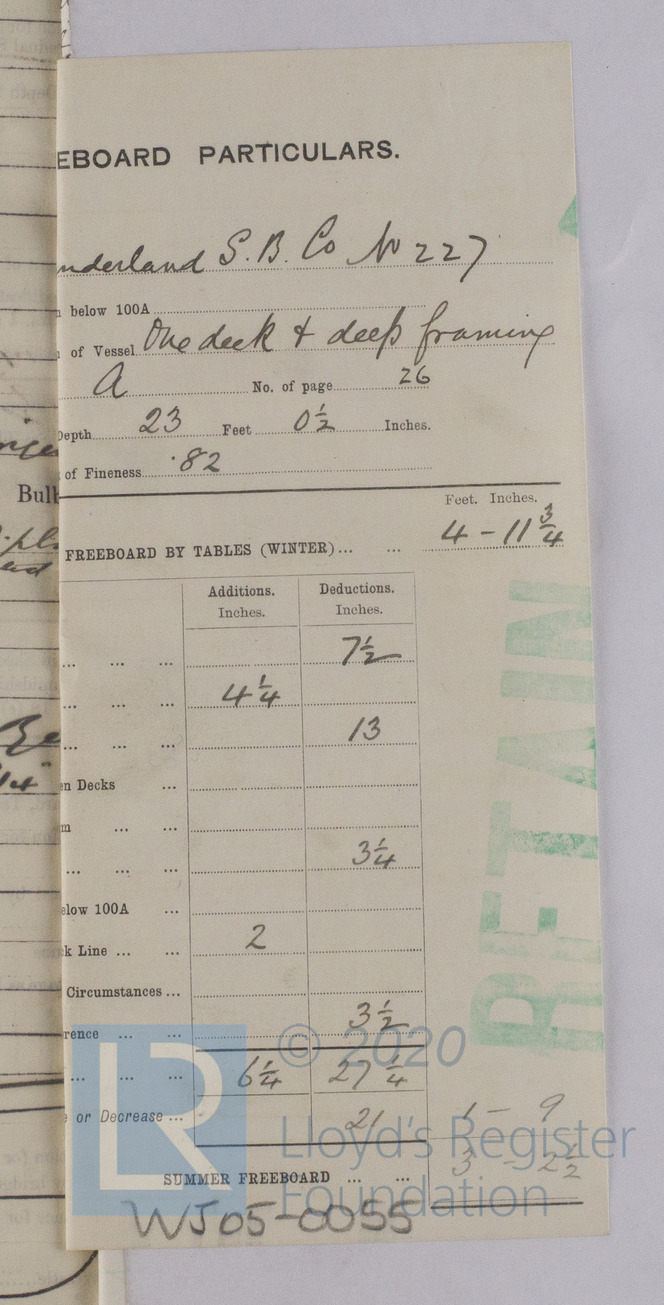 EBOARD PARTICULARS.
nderland S. B. Co No 227
below 100A
of Vessel One deck & deep framing
A No. of page 26
Depth 23 Feet 0½ Inches.
of Fineness ·82
Bull
Feet. Inches.
FREEBOARD BY TABLES (WINTER)... ... 4 - 11¾
Additions. Deductions.
Inches. Inches.
... ... ... 7½
... ... ... 4¼
... ... ... 13
en Decks ...
m ... ...
... ... ... 3¼
elow 100A ...
k Line ... ... 2
Circumstances ...
rence ... ... 3½
... ... ... 6¼ 27¼
or Decrease ... 21 1 - 9
SUMMER FREEBOARD ... ... 3 - 2½
WJ05-0055
RETAIN
LR
© 2020
Lloyd's Register
Foundation